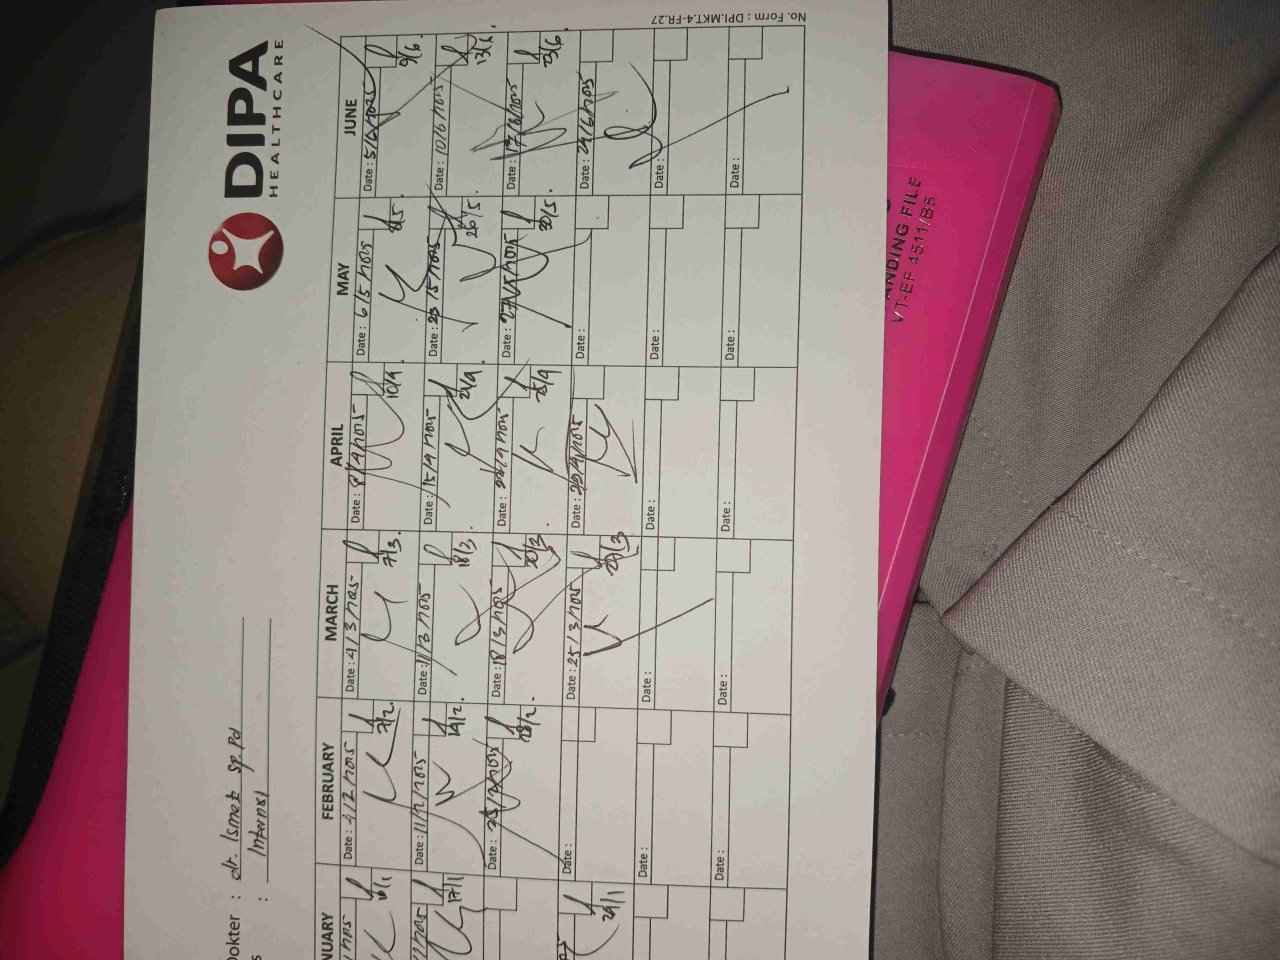 DIPA
HEALTHCARE
Dokter : dr. Ismet Sp.Pd
: Internal
NUARY FEBRUARY MARCH APRIL MAY JUNE
Date : 4/2/2025 7/2
Date : 4/3/2025 7/3
Date : 8/4/2025 10/4
Date : 6/5/2025
Date : 5/6/2025 9/6
17/1
Date : 11/2/2025 14/2
Date : 11/3/2025 18/3
Date : 15/4/2025
Date : 23/5/2025 26/5
Date : 10/6/2025 13/6
Date : 25/2/2025 28/2
Date : 18/3/2025 20/3
Date : 25/4
Date : 27/5/2025 30/5
Date : 17/6/2025 23/6
29/1
Date :
Date : 25/3/2025
Date :
Date :
Date : 24/6/2025
Date :
Date :
Date :
Date :
Date :
Date :
Date :
Date :
Date :
Date :
No. Form : DPI.MKT.4-FR.27
ANDING FILE
VT-EF 4511/B5